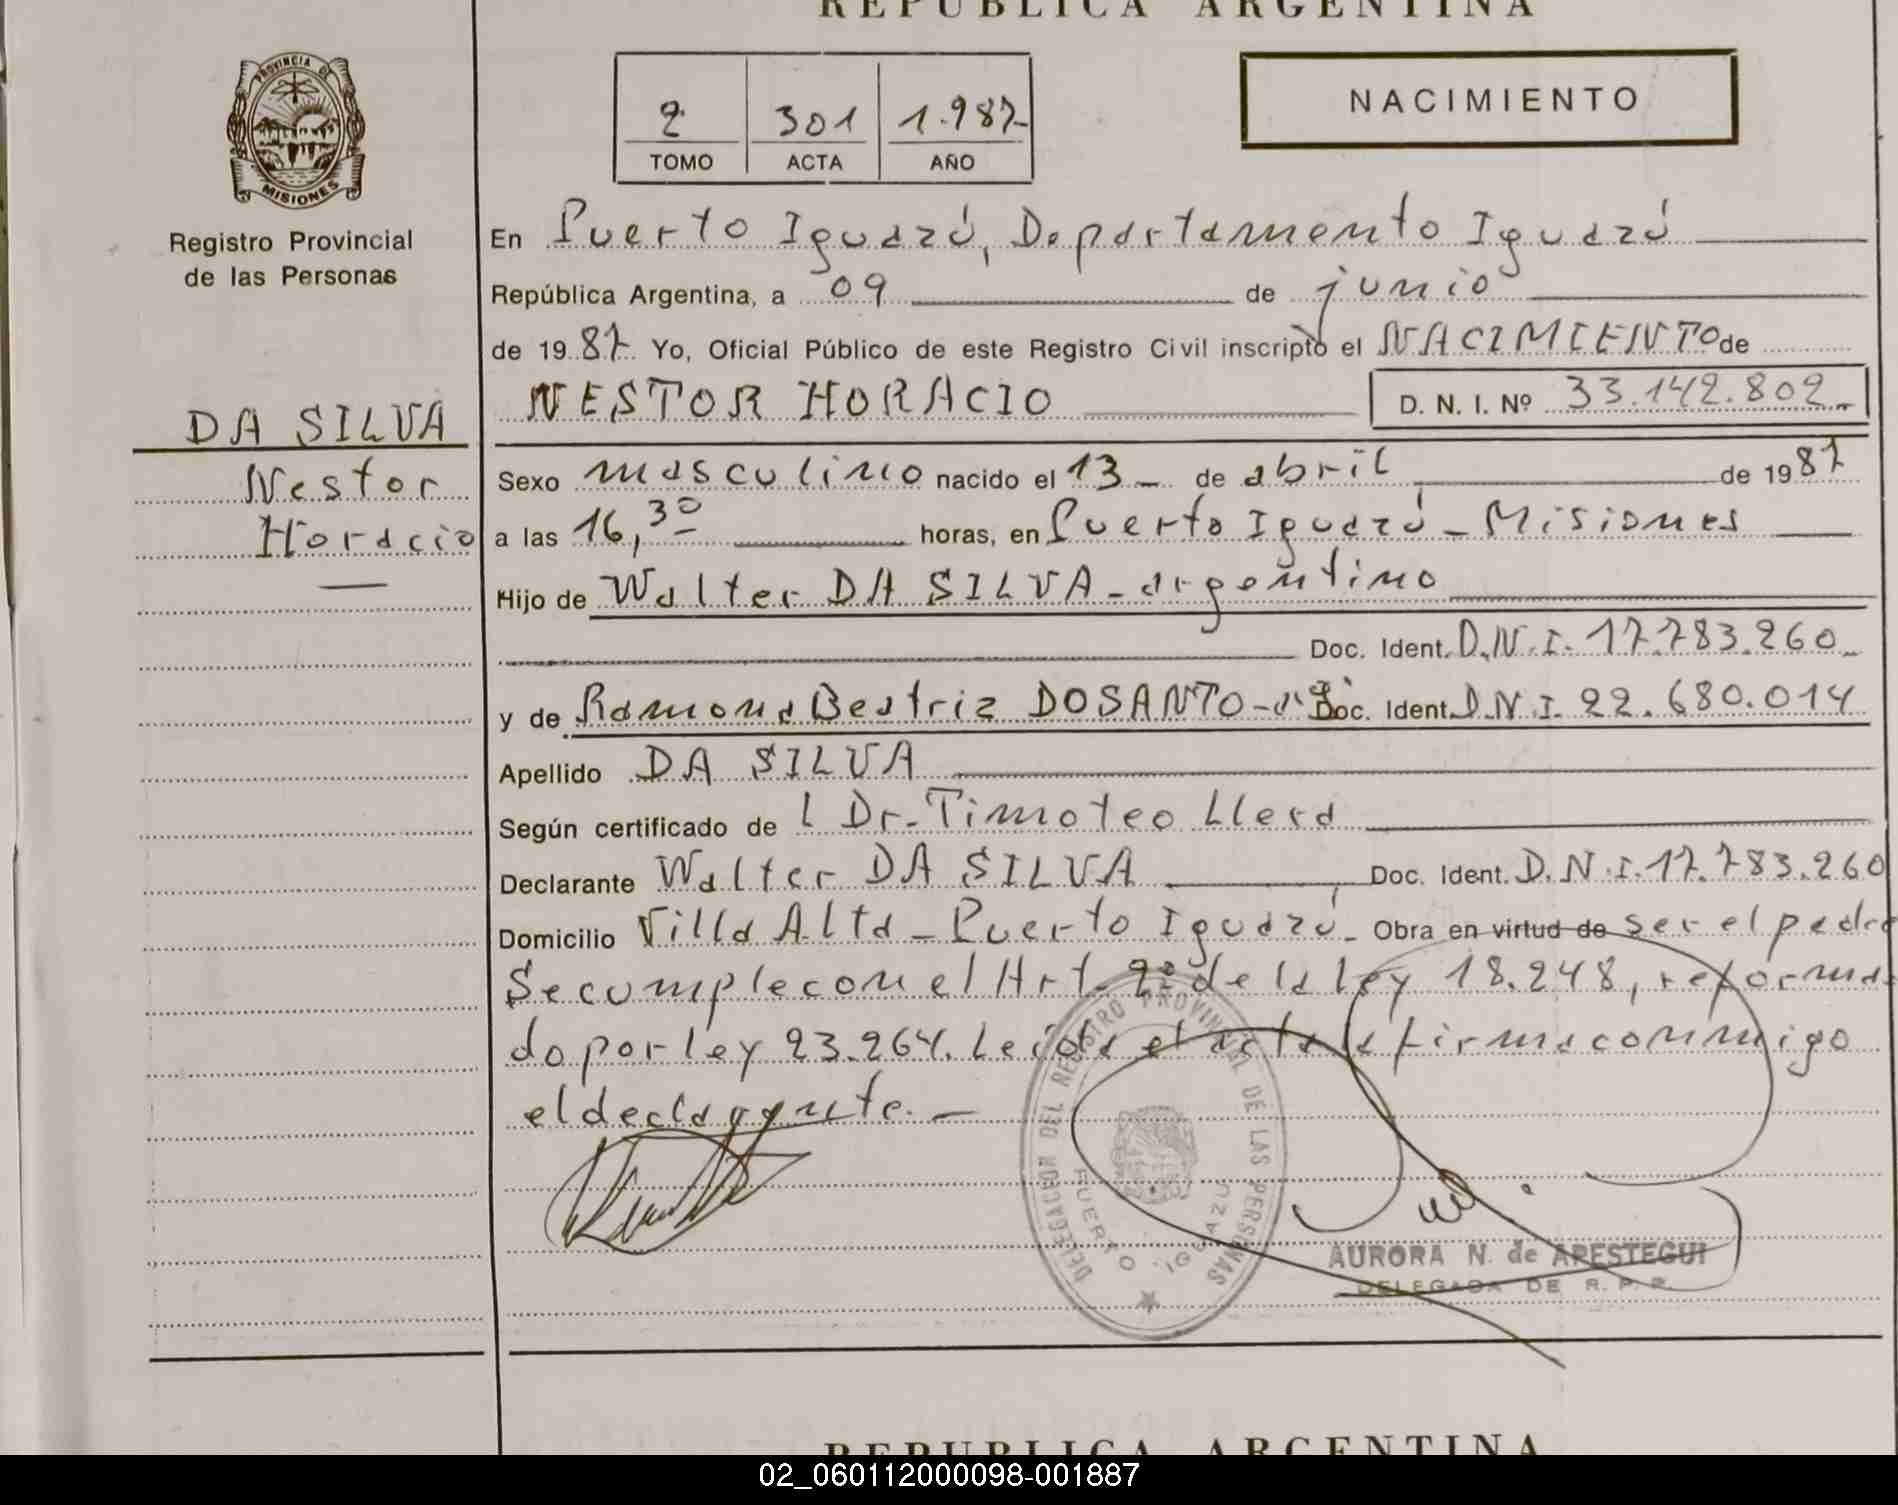 REPUBLICA ARGENTINA
PROVINCIA DE
MISIONES
Registro Provincial
de las Personas
2 301 1.987
TOMO ACTA AÑO
NACIMIENTO
En Puerto Iguazú, Departamento Iguazú
República Argentina, a 09 de junio
de 1987 Yo, Oficial Público de este Registro Civil inscripto el NACIMIENTO de
NESTOR HORACIO D. N. I. Nº 33.142.802
DA SILVA
Nestor
Horacio
Sexo masculino nacido el 13 de abril de 1987
a las 16,30 horas, en Puerto Iguazú - Misiones
Hijo de Walter DA SILVA - argentino
Doc. Ident. D.N.I. 17.783.260
y de Ramona Beatriz DOSANTO - Doc. Ident. D.N.I. 22.680.014
Apellido DA SILVA
Según certificado de l Dr. Timoteo Llera
Declarante Walter DA SILVA Doc. Ident. D.N.I. 17.783.260
Domicilio Villa Alta - Puerto Iguazú - Obra en virtud de ser el padre
Se cumple con el Art. 2º de la ley 18.248, reforma
do por ley 23.264. Leída el acta la firma conmigo
el declarante. -
DELEGACION DEL REGISTRO PROVINCIAL DE LAS PERSONAS
PUERTO IGUAZU
AURORA N. de APESTEGUI
DELEGADA DE R. P. P.
REPUBLICA ARGENTINA
02_060112000098-001887